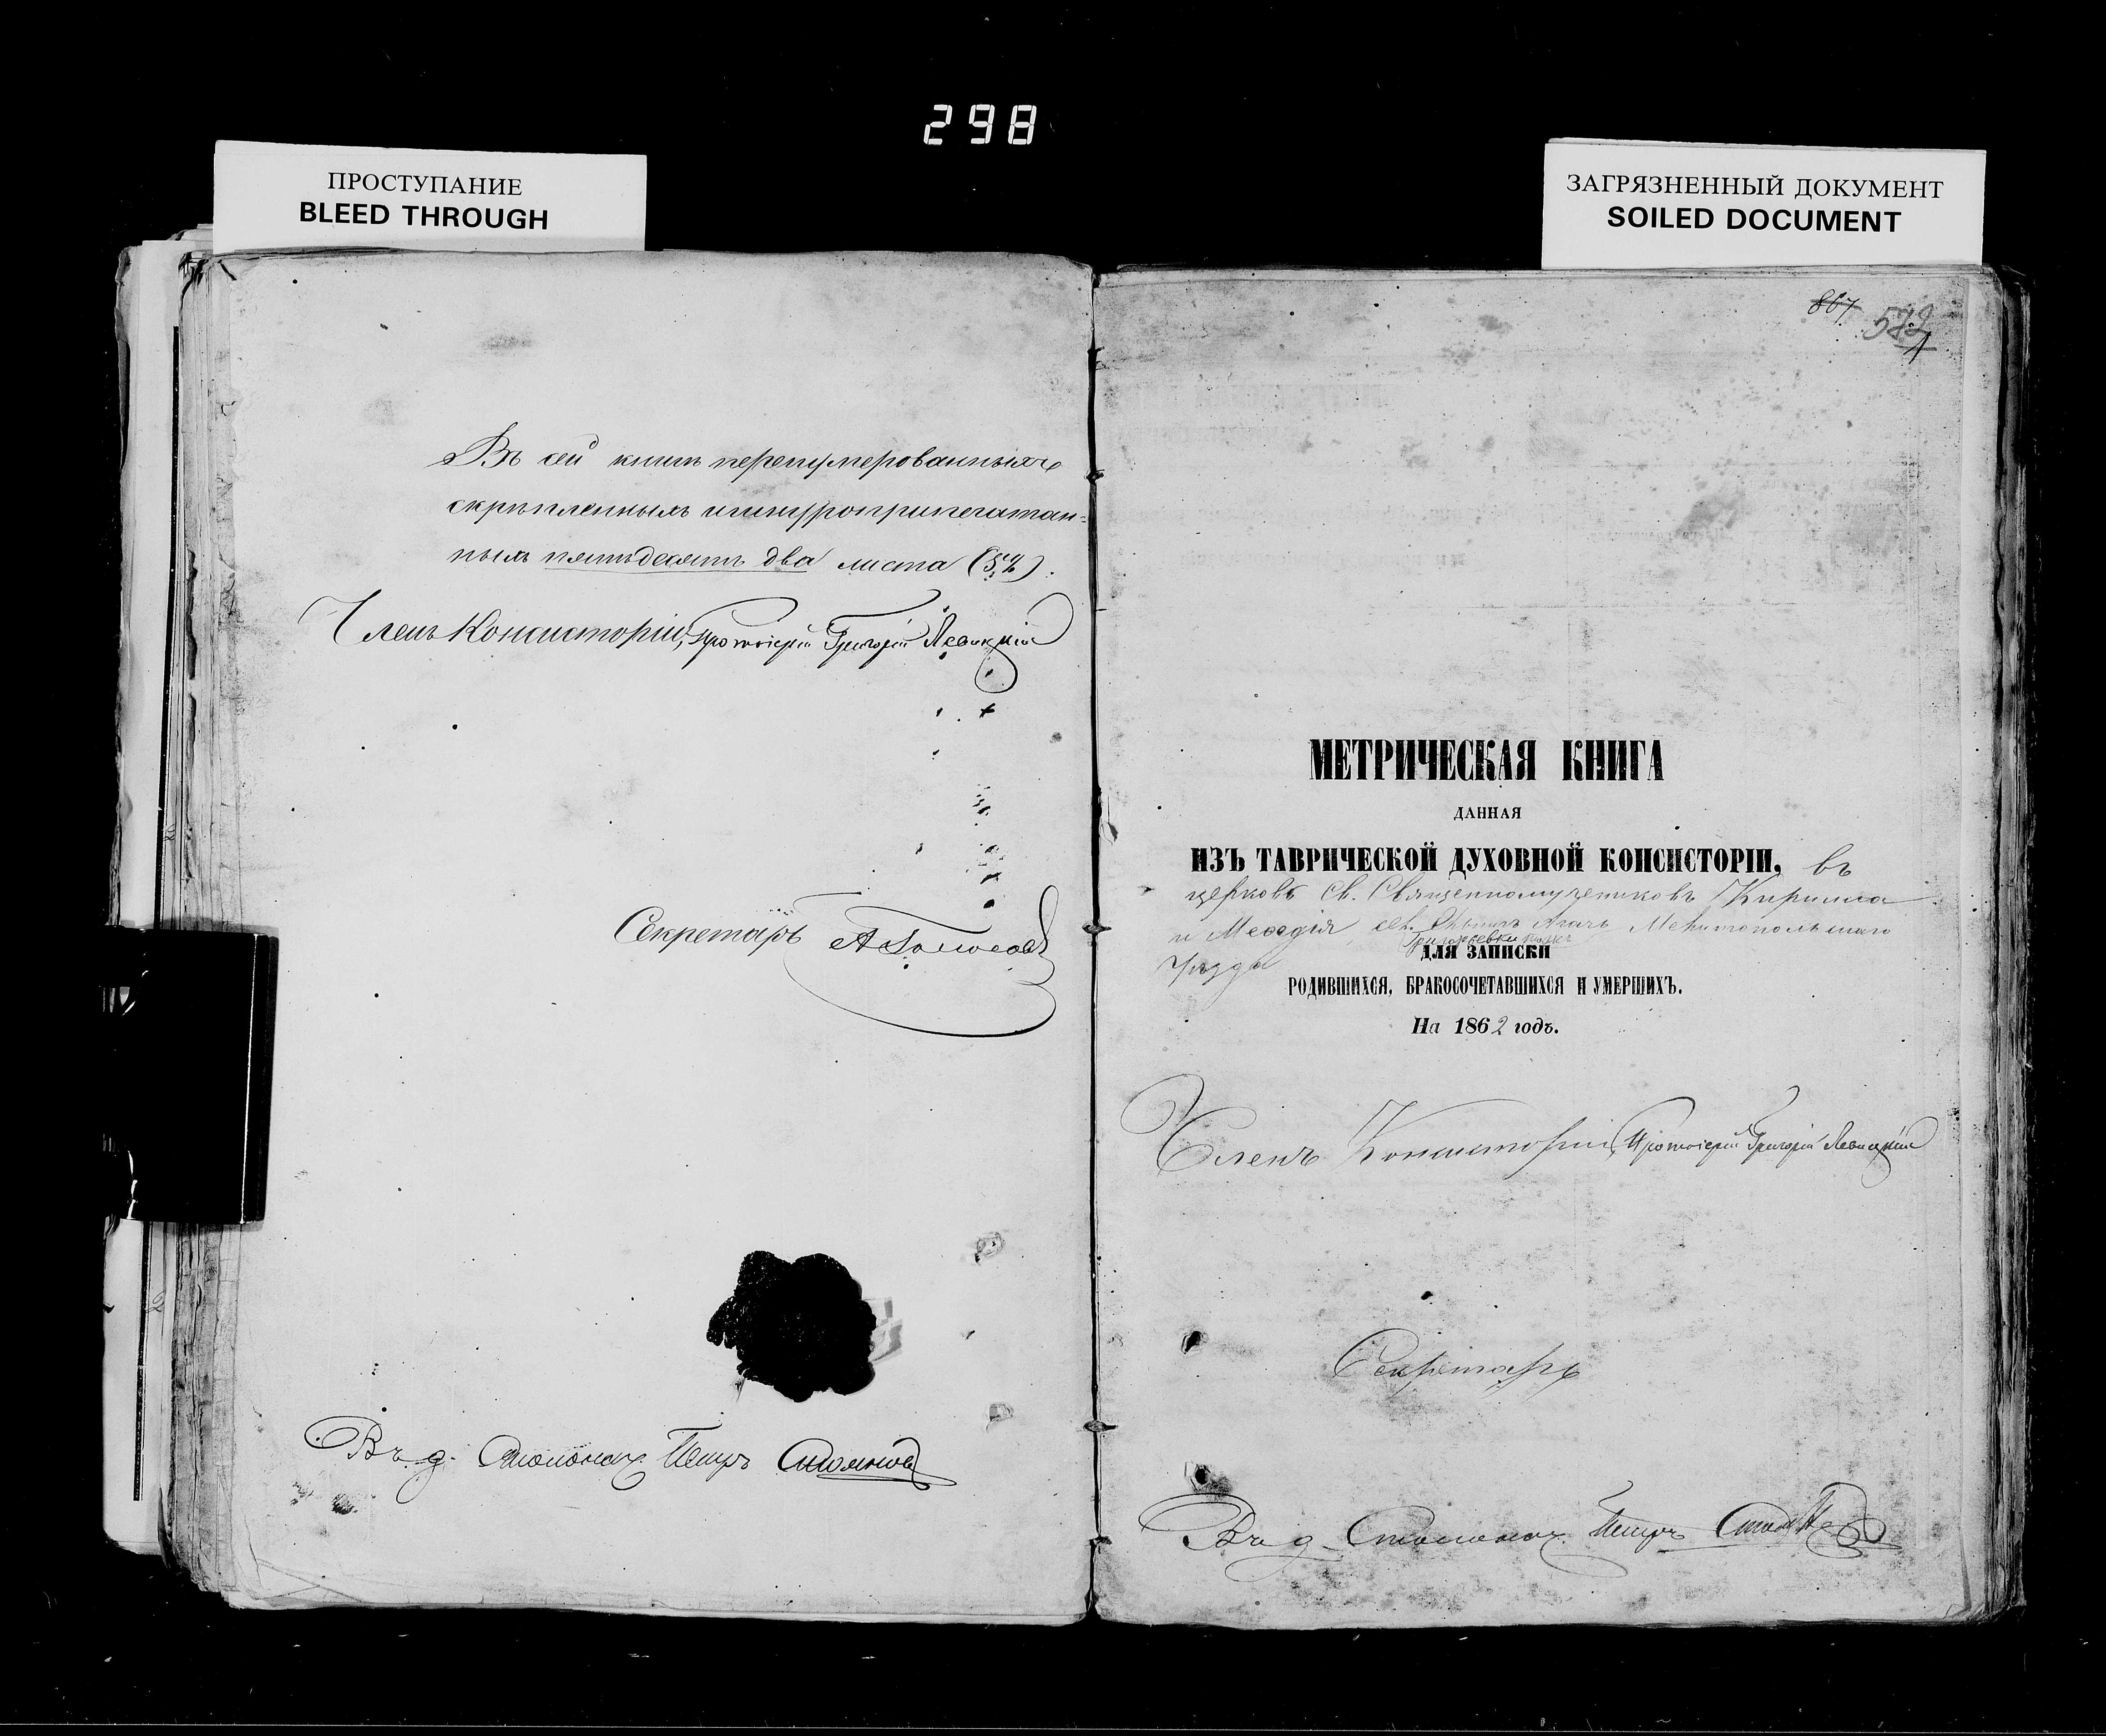 298
ПРОСТУПАНИЕ
BLEED THROUGH
ЗАГРЯЗНЕННЫЙ ДОКУМЕНТ
SOILED DOCUMENT
Въ сей книгѣ перенумерованныхъ
скрѣпленныхъ и шнуроприпечатан-
ныхъ пятьдесятъ два листа (52).
Членъ Консисторіи, Протоіерей Григорій Левицкій
Секретарь
Въ д. Столонач. Петръ
867
МЕТРИЧЕСКАЯ КНИГА
ДАННАЯ
ИЗЪ ТАВРИЧЕСКОЙ ДУХОВНОЙ КОНСИСТОРІИ, въ
церковь Св. Священномучениковъ Кирилла
и Меѳодія сел. Агачь Мелитопольскаго
Григорьевки
уѣзда
ДЛЯ ЗАПИСКИ
РОДИВШИХСЯ, БРАКОСОЧЕТАВШИХСЯ И УМЕРШИХЪ.
На 1862 годъ.
Членъ Консисторіи, Протоіерей Григорій Левицкій
Секретарь
Въ д. Столонач. Петръ